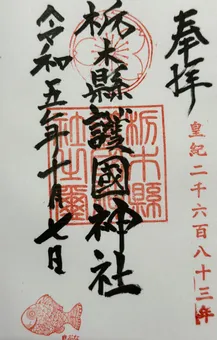 奉拝
皇紀二千六百八十三年
栃木縣護國神社
栃木縣
令和五年十月七日